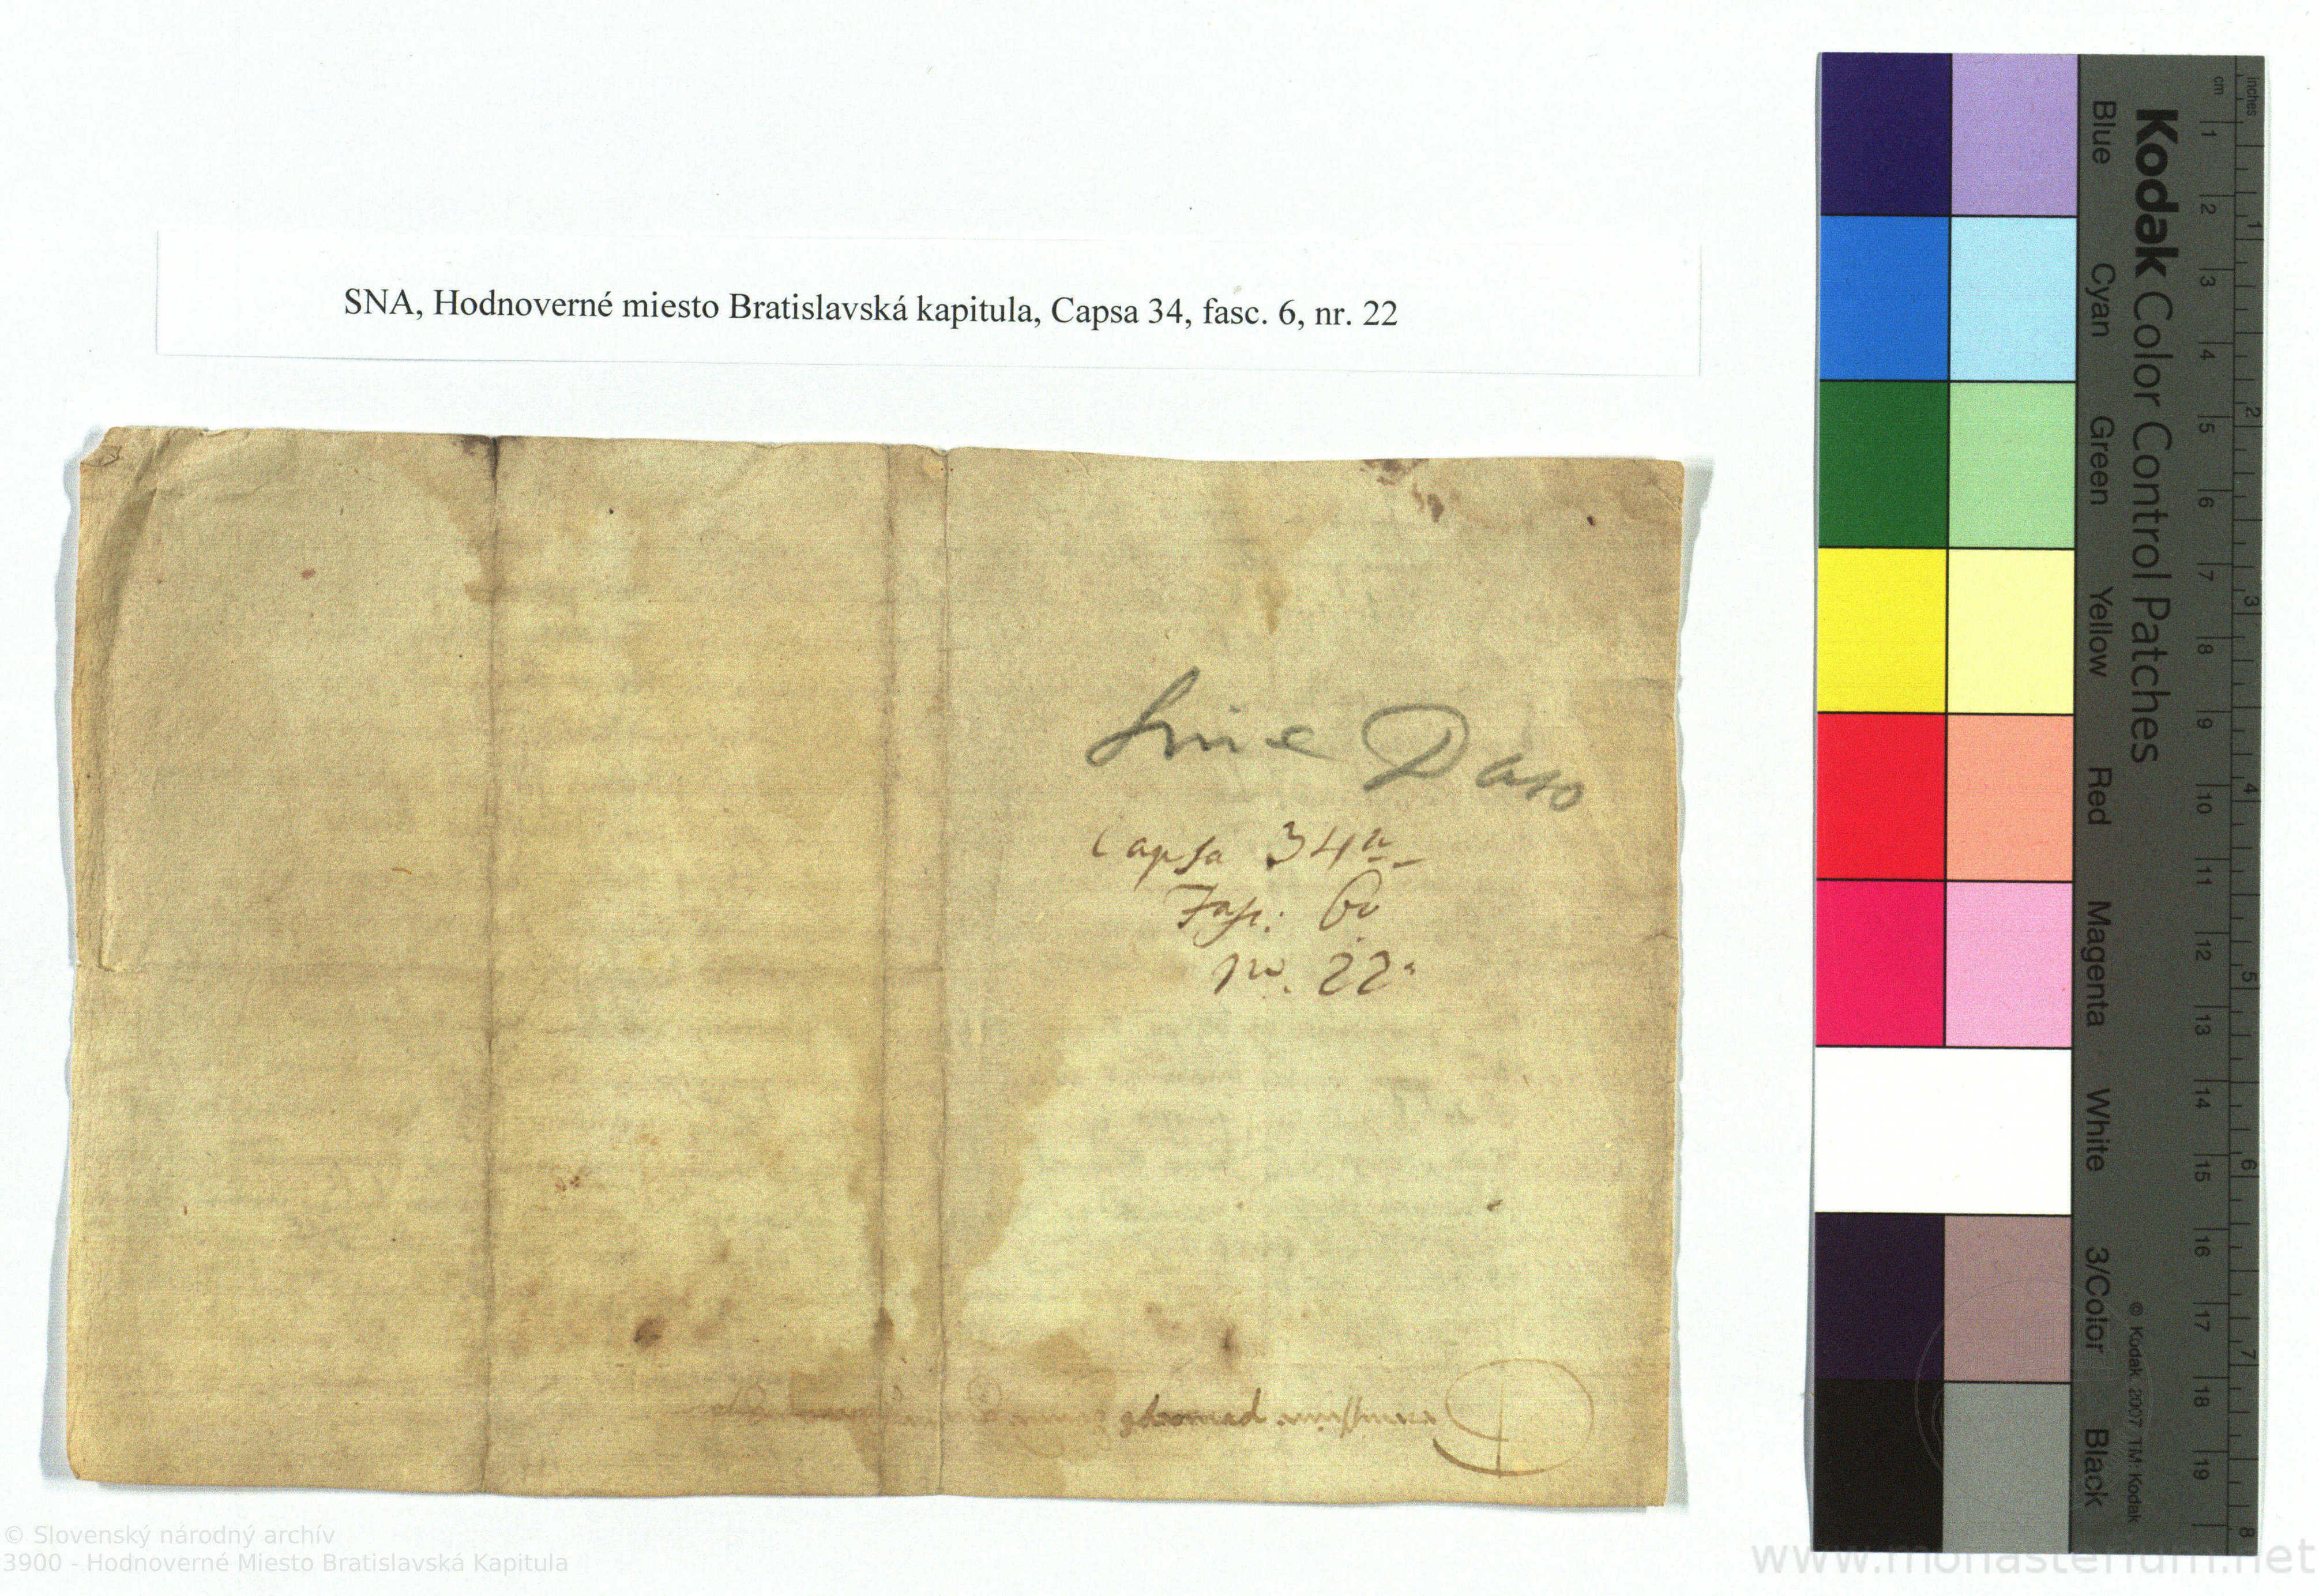 SNA, Hodnoverné miesto Bratislavská kapitula, Capsa 34, fasc. 6, nr. 22
Sine Dato
Capsa 34a
Fasc: 6
nr. 22
inches
cm
1 2 3 4 5 6 7 8
1 2 3 4 5 6 7 8 9 10 11 12 13 14 15 16 17 18 19
Kodak Color Control Patches
© Kodak, 2007 TM: Kodak
Blue Cyan Green Yellow Red Magenta White 3/Color Black
© Slovenský národný archív
3900 - Hodnoverné Miesto Bratislavská Kapitula
www.monasterium.net